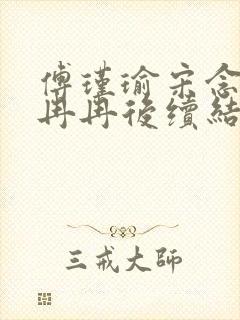 傅瑾瑜宋念
冉冉後續結
三戒大師